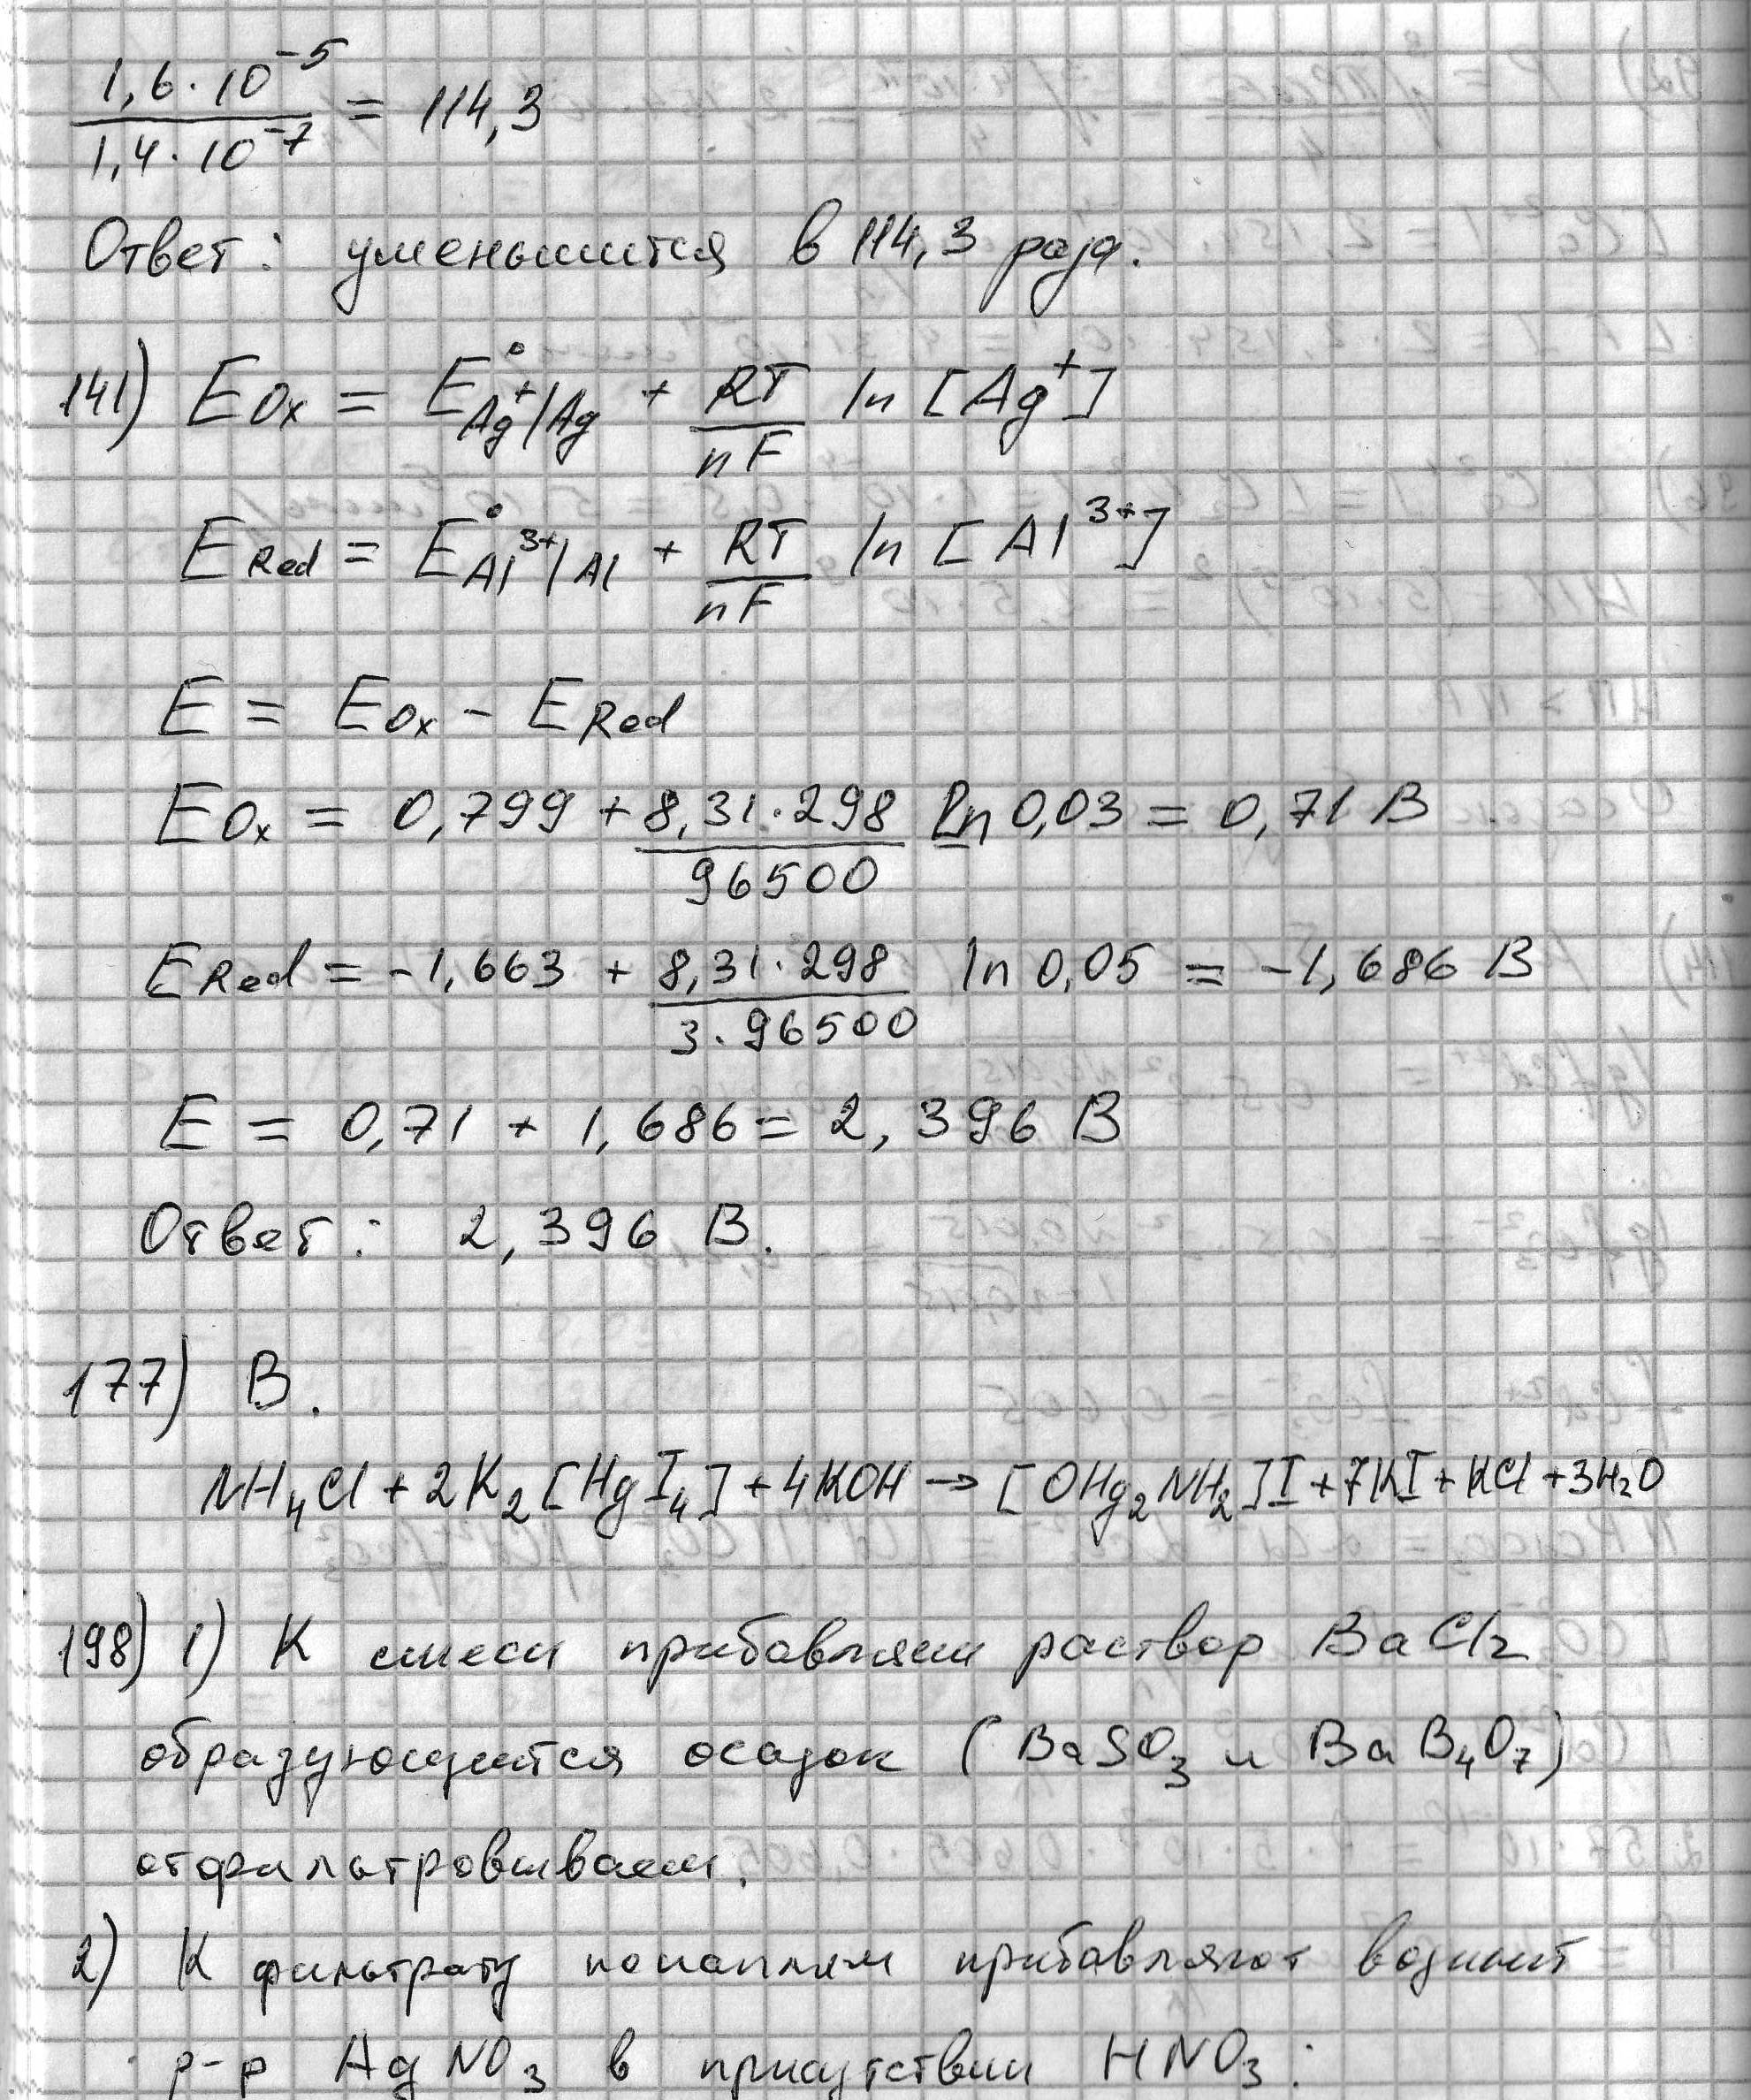 1,6·10⁻⁵ / 1,4·10⁻⁷ = 114,3
Ответ: уменьшится в 114,3 раза.
141) E Ox = E° Ag⁺/Ag + RT/nF ln [Ag⁺]
E Red = E° Al³⁺/Al + RT/nF ln [Al³⁺]
E = E Ox - E Red
E Ox = 0,799 + 8,31·298/96500 ln 0,03 = 0,71 В
E Red = -1,663 + 8,31·298/3·96500 ln 0,05 = -1,686 В
E = 0,71 + 1,686 = 2,396 В
Ответ: 2,396 В.
177) В.
NH₄Cl + 2K₂[HgI₄] + 4KOH → [OHg₂NH₂]I + 7KI + KCl + 3H₂O
198) 1) К смеси прибавляем раствор BaCl₂
образующийся осадок (BaSO₃ и BaB₄O₇)
отфильтровываем.
2) К фильтрату по каплям прибавляют
р-р AgNO₃ в присутствии HNO₃: